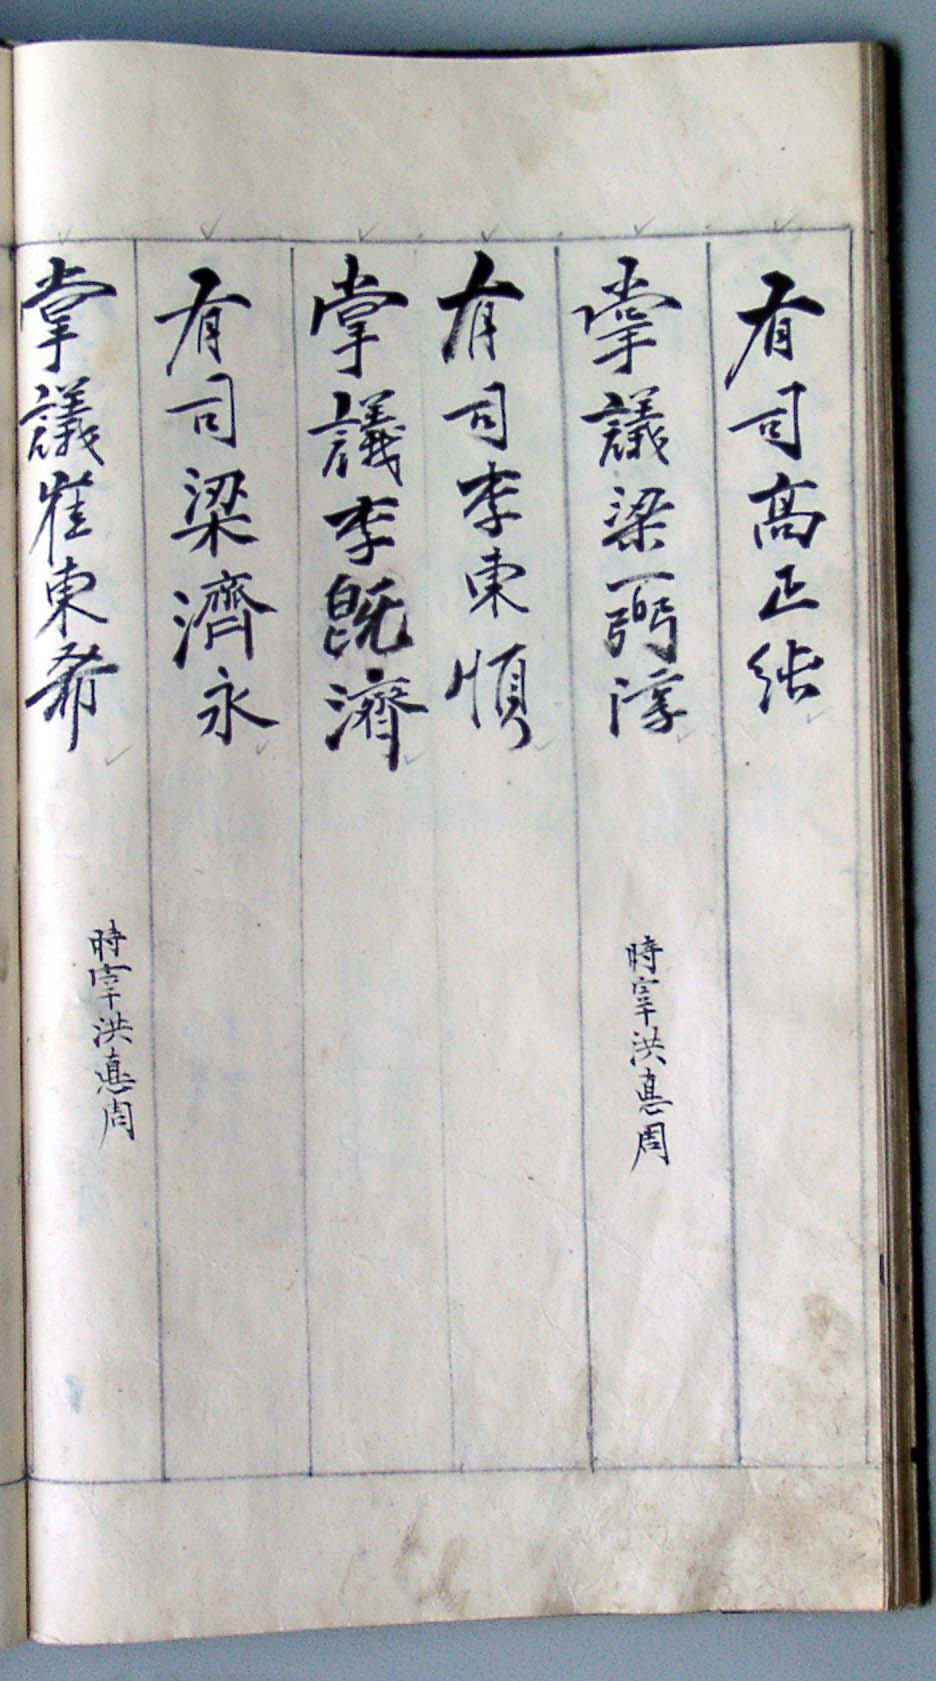 有司高正
掌議梁弼淳
時宰洪惪周
有司李東順
掌議李旣濟
有司梁濟永
掌議崔東希
時宰洪惪周